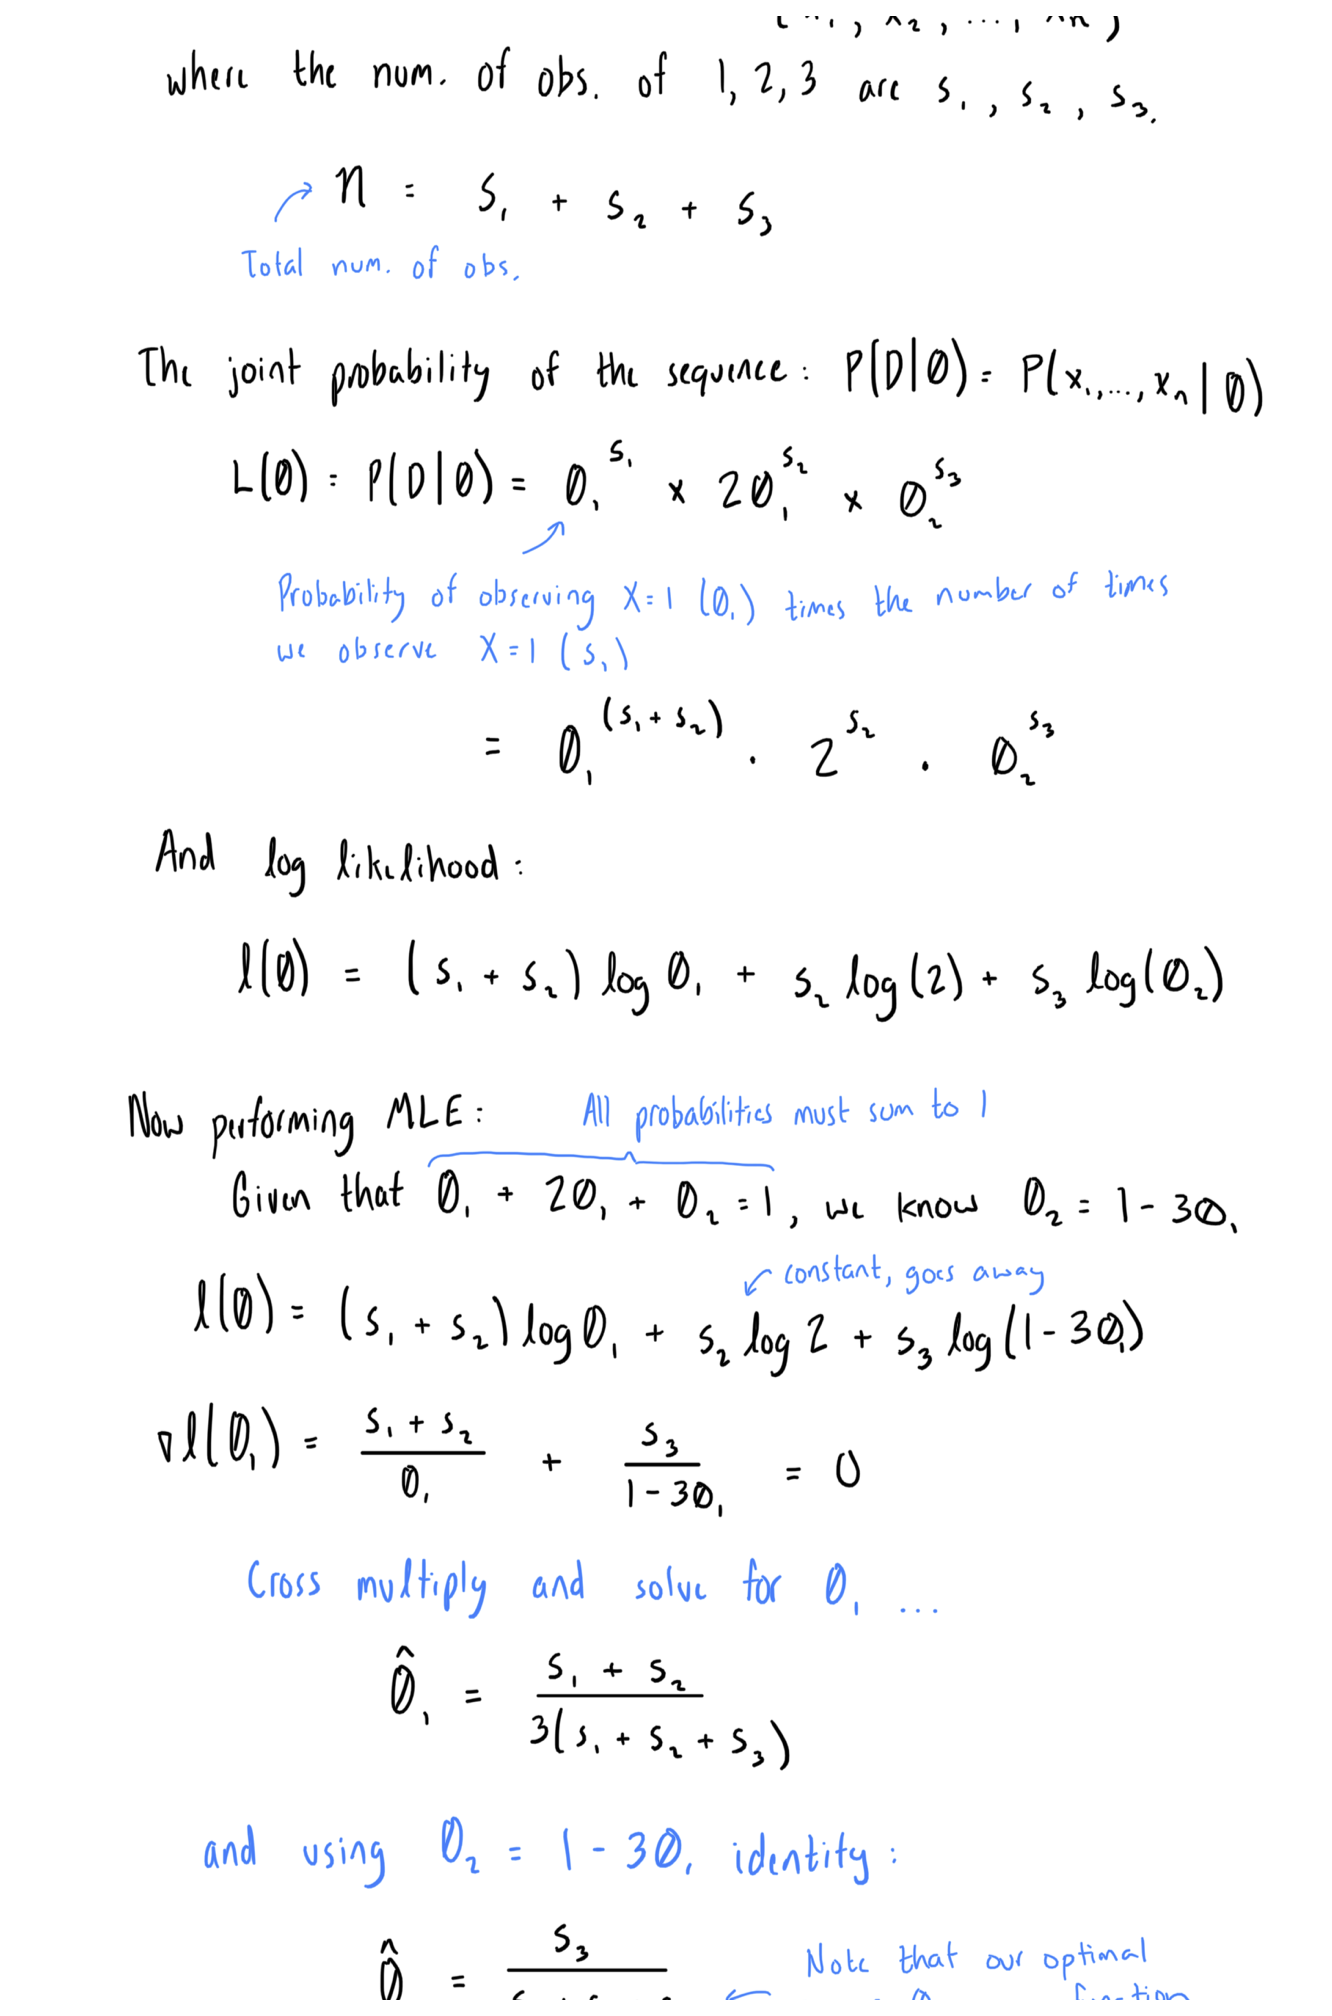 (x₁, x₂, ..., xn)
where the num. of obs. of 1, 2, 3 are s₁, s₂, s₃.
n = s₁ + s₂ + s₃
Total num. of obs.
The joint probability of the sequence: P(D|θ) = P(x₁,...,xₙ|θ)
L(θ) = P(D|θ) = θ₁^s₁ × 2θ₁^s₂ × θ₂^s₃
Probability of observing X=1 (θ₁) times the number of times
we observe X=1 (s₁)
= θ₁^(s₁+s₂) · 2^s₂ · θ₂^s₃
And log likelihood:
l(θ) = (s₁ + s₂) log θ₁ + s₂ log(2) + s₃ log(θ₂)
Now performing MLE: All probabilities must sum to 1
Given that θ₁ + 2θ₁ + θ₂ = 1, we know θ₂ = 1 - 3θ₁
constant, goes away
l(θ) = (s₁ + s₂) log θ₁ + s₂ log 2 + s₃ log(1 - 3θ₁)
∇l(θ₁) = (s₁ + s₂)/θ₁ + s₃/(1 - 3θ₁) = 0
Cross multiply and solve for θ₁ ...
θ̂₁ = (s₁ + s₂)/(3(s₁ + s₂ + s₃))
and using θ₂ = 1 - 3θ₁ identity:
θ̂ = s₃
Note that our optimal
function